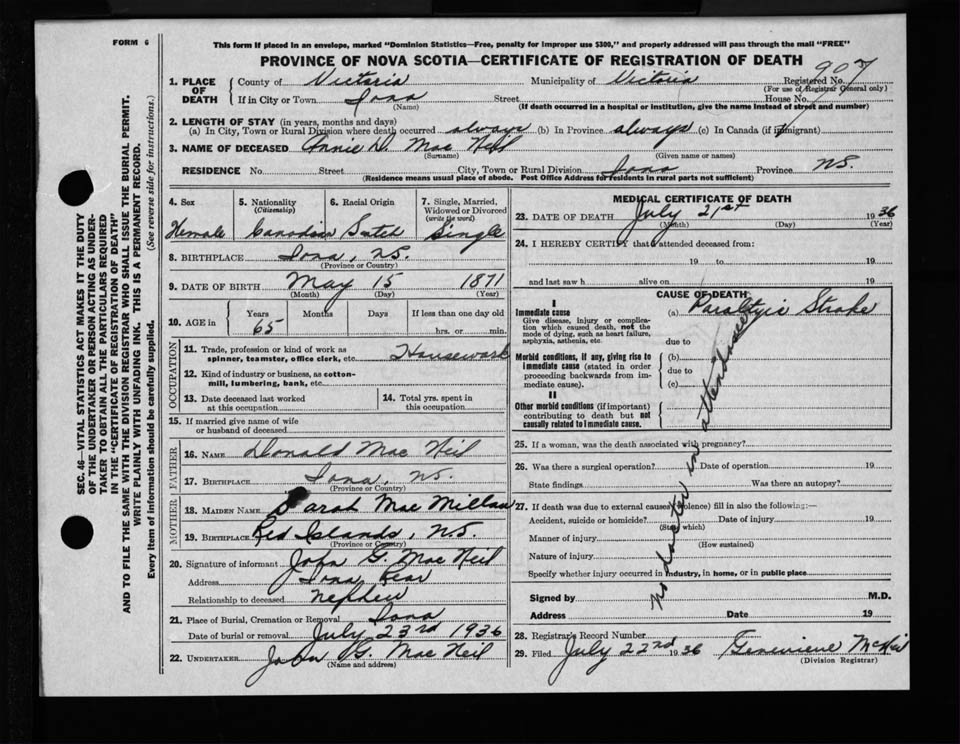 FORM 6
This form if placed in an envelope, marked "Dominion Statistics—Free, penalty for improper use $300," and properly addressed will pass through the mail "FREE"
PROVINCE OF NOVA SCOTIA—CERTIFICATE OF REGISTRATION OF DEATH
1. PLACE OF DEATH County of Victoria Municipality of Victoria Registered No. 907
(For use of Registrar General only)
If in City or Town Iona Street House No.
(Name) (If death occurred in a hospital or institution, give the name instead of street and number)
2. LENGTH OF STAY (in years, months and days)
(a) In City, Town or Rural Division where death occurred always (b) In Province always (c) In Canada (if immigrant)
3. NAME OF DECEASED Annie D. Mac Neil
(Surname) (Given name or names)
RESIDENCE No. Street City, Town or Rural Division Iona Province N.S.
(Residence means usual place of abode. Post Office Address for residents in rural parts not sufficient)
4. Sex Female
5. Nationality (Citizenship) Canadian
6. Racial Origin Scotch
7. Single, Married, Widowed or Divorced (write the word) Single
8. BIRTHPLACE Iona, N.S.
(Province or Country)
9. DATE OF BIRTH May 15 1871
(Month) (Day) (Year)
10. AGE in Years 65 Months Days If less than one day old
hrs. or min.
OCCUPATION
11. Trade, profession or kind of work as spinner, teamster, office clerk, etc. Housework
12. Kind of industry or business, as cotton-mill, lumbering, bank, etc.
13. Date deceased last worked at this occupation
14. Total yrs. spent in this occupation
15. If married give name of wife or husband of deceased
FATHER
16. NAME Donald Mac Neil
17. BIRTHPLACE Iona, N.S.
(Province or Country)
MOTHER
18. MAIDEN NAME Sarah Mac Millan
19. BIRTHPLACE Red Islands, N.S.
(Province or Country)
20. Signature of informant John G. Mac Neil
Address Iona Rear
Relationship to deceased nephew
21. Place of Burial, Cremation or Removal Iona
Date of burial or removal July 23rd 1936
22. UNDERTAKER John G. Mac Neil
(Name and address)
MEDICAL CERTIFICATE OF DEATH
23. DATE OF DEATH July 21st 1936
(Month) (Day) (Year)
24. I HEREBY CERTIFY that I attended deceased from:
19 to 19
and last saw h alive on 19
CAUSE OF DEATH
I
Immediate cause
Give disease, injury or complication which caused death, not the mode of dying, such as heart failure, asphyxia, asthenia, etc.
(a) Paraltyis Stroke
due to
Morbid conditions, if any, giving rise to immediate cause (stated in order proceeding backwards from immediate cause).
(b)
due to
(c)
II
Other morbid conditions (if important) contributing to death but not causally related to immediate cause.
no doctor in attendance
25. If a woman, was the death associated with pregnancy?
26. Was there a surgical operation? Date of operation 19
State findings Was there an autopsy?
27. If death was due to external causes (violence) fill in also the following:—
Accident, suicide or homicide? Date of injury 19
(State which)
Manner of injury
(How sustained)
Nature of injury
Specify whether injury occurred in industry, in home, or in public place
Signed by M.D.
Address Date 19
28. Registrar's Record Number
29. Filed July 22nd 1936 Genevieve McNeil
(Division Registrar)
SEC. 46—VITAL STATISTICS ACT MAKES IT THE DUTY
OF THE UNDERTAKER OR PERSON ACTING AS UNDER-
TAKER TO OBTAIN ALL THE PARTICULARS REQUIRED
IN THE "CERTIFICATE OF REGISTRATION OF DEATH"
AND TO FILE THE SAME WITH THE DIVISION REGISTRAR WHO SHALL ISSUE THE BURIAL PERMIT.
WRITE PLAINLY WITH UNFADING INK. THIS IS A PERMANENT RECORD.
Every item of information should be carefully supplied. (See reverse side for instructions.)